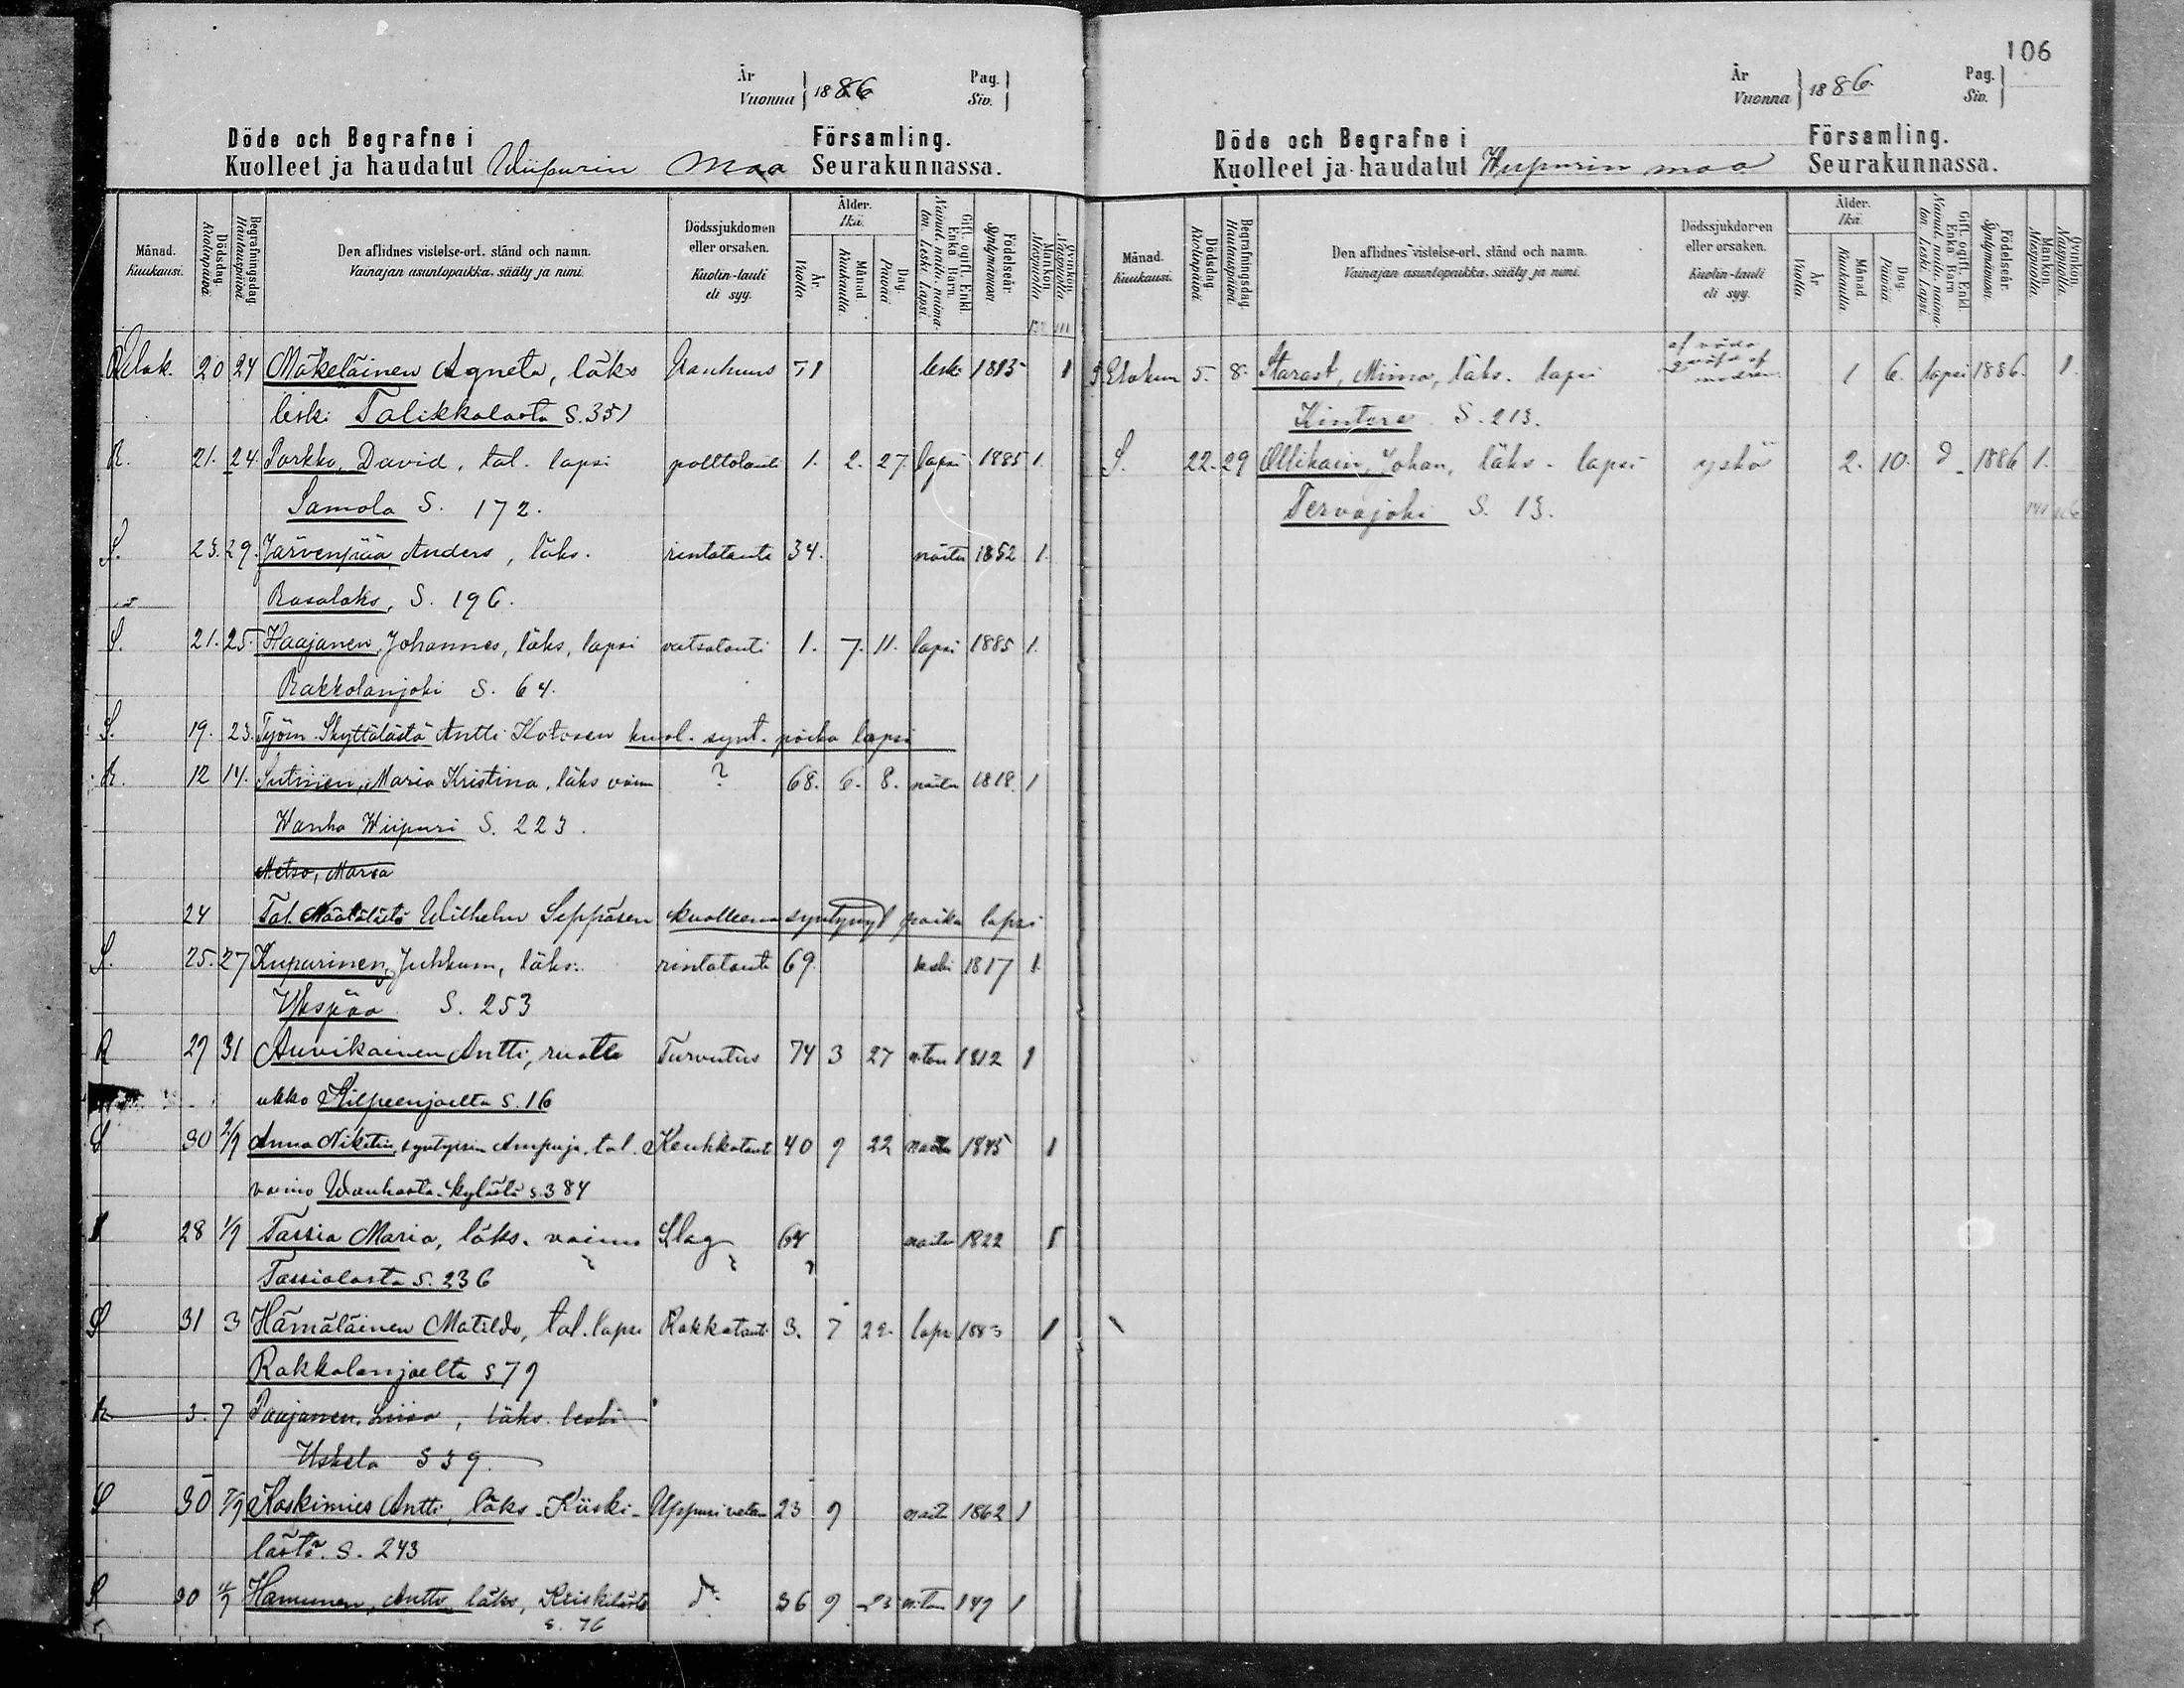 År
Vuonna } 1886
Pag.
Siv. }
Döde och Begrafne i Församling.
Kuolleet ja haudatut Wiipurin Maa Seurakunnassa.
Månad.
Kuukausi.
Dödsdag.
Kuolinpäivä.
Begrafningsdag.
Hautauspäivä.
Den aflidnes vistelse-ort, stånd och namn.
Vainajan asuntopaikka, sääty ja nimi.
Dödssjukdomen
eller orsaken.
Kuolin-tauti
eli syy.
Ålder.
Ikä.
År.
Vuotta
Månad.
Kuukautta
Dag.
Päivää
Gift, ogift, Enkl.
Enka. Barn.
Nainut, naitu, naima-
ton. Leski. Lapsi.
Födelseår.
Syntymävuosi.
Mankön.
Miespuolia.
Qvinkön.
Naispuolia.
Elok. 20 24 Mäkeläinen Agneta, läks Vanhuus 71 leski 1815 1
leski Talikkalasta S. 351
R. 21. 24. Parkko, David, tal. lapsi polttotauti 1. 2. 27. lapsi 1885 1.
Samola S. 172.
S. 23. 29. Järvenpää, Anders, läks. rintatauti 34. naitu 1852 1.
Rasalaks, S. 196.
S. 21. 25. Haajanen, Johannes, läks, lapsi vatsatauti 1. 7. 11. lapsi 1885 1.
Rakkolanjoki S. 64.
S. 19. 23. Työm. Skyttälästä Antti Kotosen kuol. synt. poika lapsi
R. 12 14. Sutinen, Maria Kristina, läks vaim ? 68. 6. 8. naitu 1818. 1
Wanha Wiipuri S. 223.
Metso, Maria
24 Tal. Näätälästä Wilhelm Seppäsen kuolleena syntynyt poika lapsi
S. 25. 27 Kupurinen, Juhkum, läks. rintatauti 69. leski 1817 1.
Ykspää S. 253
R 29 31 Auvikainen Antti, ruotu Turvutus 74 3 27 n:ton 1812 1
ukko Kilpeenjoelta S. 16
S 30 2/9 Anna Nikitin, syntyisin Ampuja, tal. Keuhkotauti 40 9 22 naitu 1845 1
vaimo Wanhasta-kylästä s. 384
28 1/9 Tassia Maria, läks. vaimo Slag 64 naitu 1822 1
Tassialasta S. 236
S 31 3 Hämäläinen Matilda, tal. lapsi Rokkotauti 3. 7 22. lapsi 1883 1
Rakkolanjoelta S 79
R 3. 7 Paajanen, Liisa, läks. leski
Uskela S 39.
S 30 7/9 Koskimies Antti, läks. Kiiski- Uppusi veteen 23 9 nait 1862 1
lästä. S. 243
S 30 Hamunen, Antti, läks, Kiiskilästä d:o 36 9 23 n:ton 1
S. 76
106
År
Vuonna } 1886.
Pag.
Siv. }
Döde och Begrafne i Församling.
Kuolleet ja haudatut Wiipurin maa Seurakunnassa.
Månad.
Kuukausi.
Dödsdag.
Kuolinpäivä.
Begrafningsdag.
Hautauspäivä.
Den aflidnes vistelse-ort, stånd och namn.
Vainajan asuntopaikka, sääty ja nimi.
Dödssjukdomen
eller orsaken.
Kuolin-tauti
eli syy.
Ålder.
Ikä.
År.
Vuotta
Månad.
Kuukautta
Dag.
Päivää
Gift, ogift, Enkl.
Enka. Barn
Nainut, naitu, naima-
ton. Leski. Lapsi.
Födelseår.
Syntymävuosi.
Mankön.
Miespuolia.
Qvinkön.
Naispuolia.
Elokuu 5. 8. Starast, Mimo, läks. lapsi af våda qväfd af modren 1 6. lapsi 1886. 1.
Kintere S. 213.
S. 22. 29 Ollikain, Johan, läks. lapsi yskä 2. 10. d 1886 1.
Tervajoki S. 13.